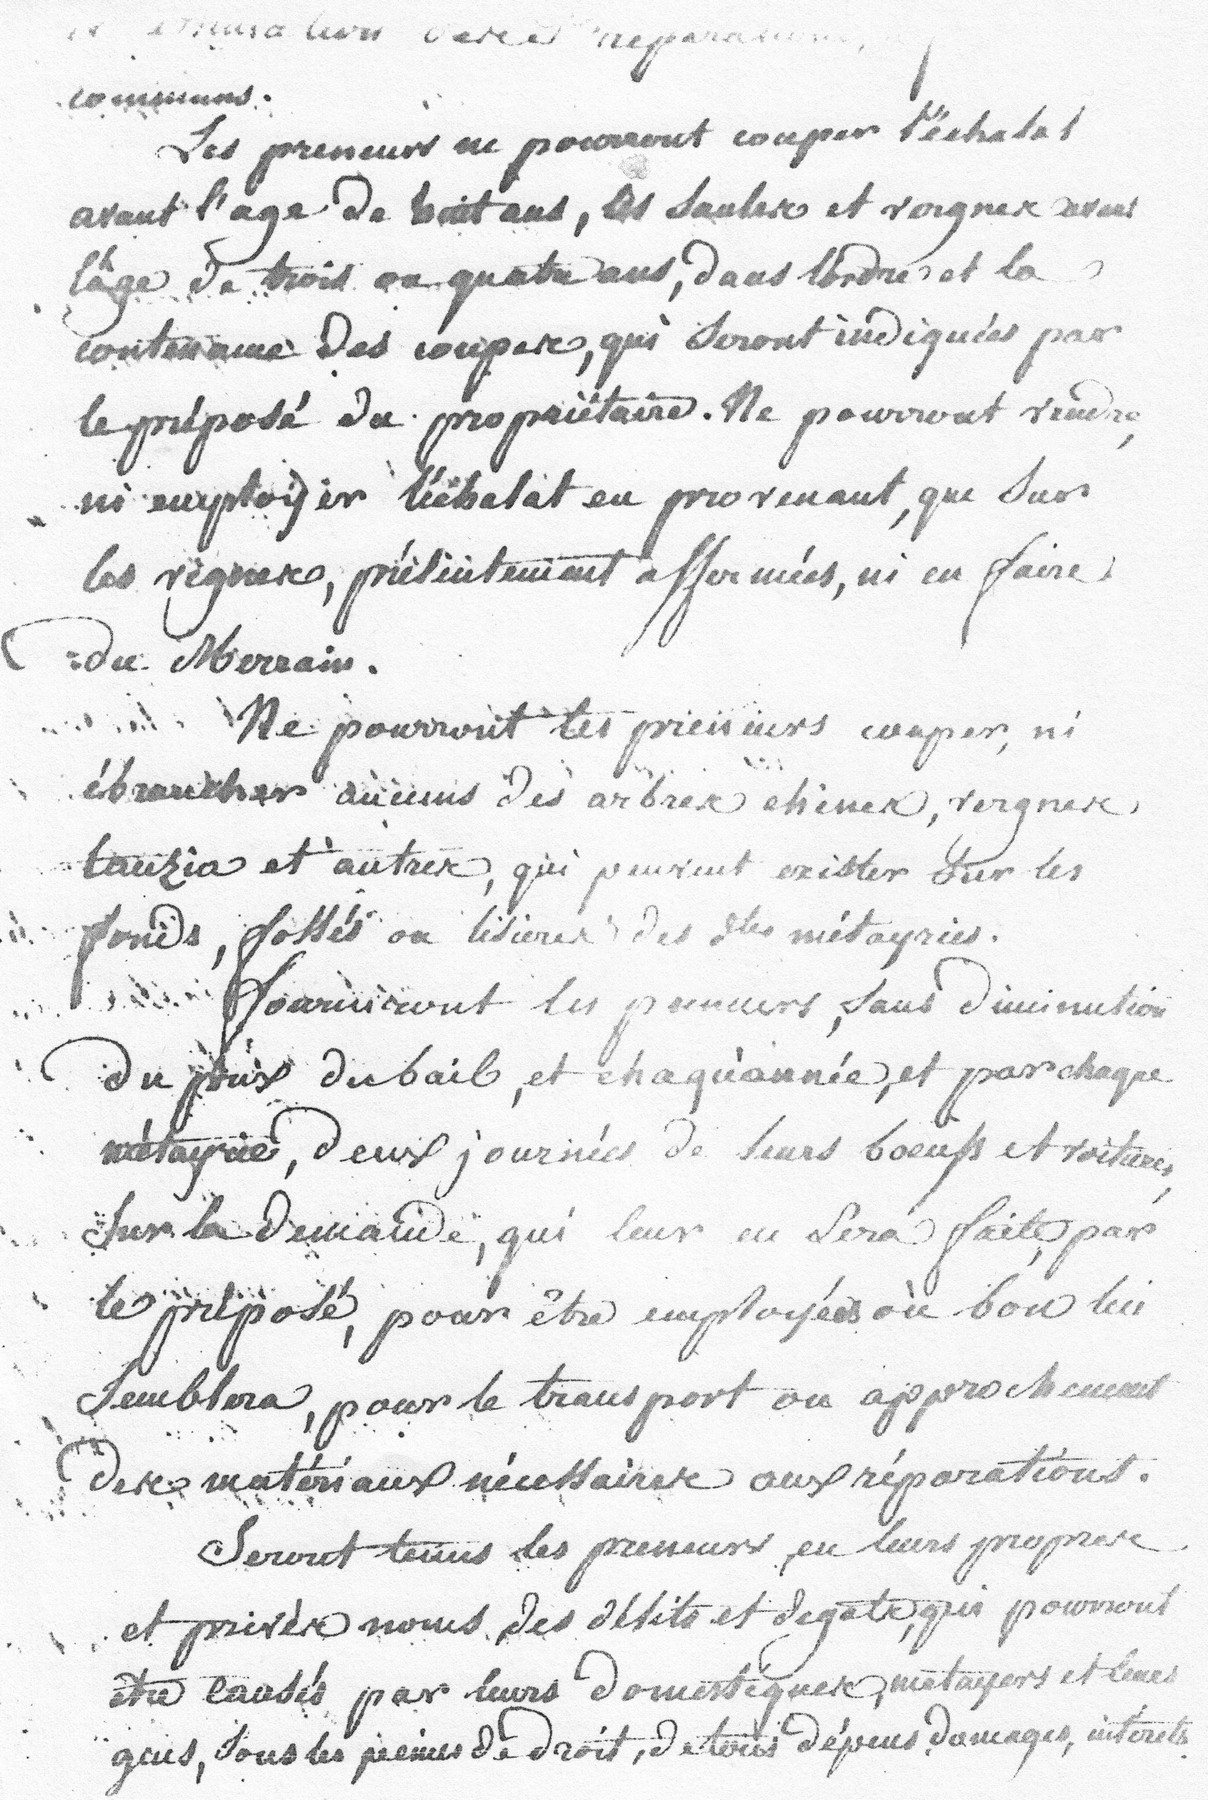 réparations,
communs.
Les preneurs ne pourront couper l'échalat
avant l'age de huit ans, les saules et vergnes avant
l'âge de trois ou quatre ans, dans l'ordre et la
contenance des coupes, qui seront indiquées par
le préposé du propriétaire. Ne pourront vendre,
ni employer l'échalat en provenant, que sur
les vignes, présentement affermées, ni en faire
du Merrain.
Ne pourront les preneurs couper, ni
ébrancher aucuns des arbres chênes, vergnes
tauzia et autres, qui peuvent exister sur les
fonds, fossés ou lisieres des dtes métayries.
Fourniront les preneurs, sans diminution
du prix du bail, et chaqu'année, et par chaque
métayrie, deux journées de leurs boeufs et voitures,
sur la demande, qui leur en sera faite, par
le préposé, pour être employées où bon lui
semblera, pour le transport ou approchement
des matériaux nécessaires aux réparations.
Seront tenus les preneurs, en leurs propres
et privés noms, des délits et degats, qui pourront
être causés par leurs domestiques, metayers et leurs
gens, sous les peines de droit, de tous dépens damages, intérets